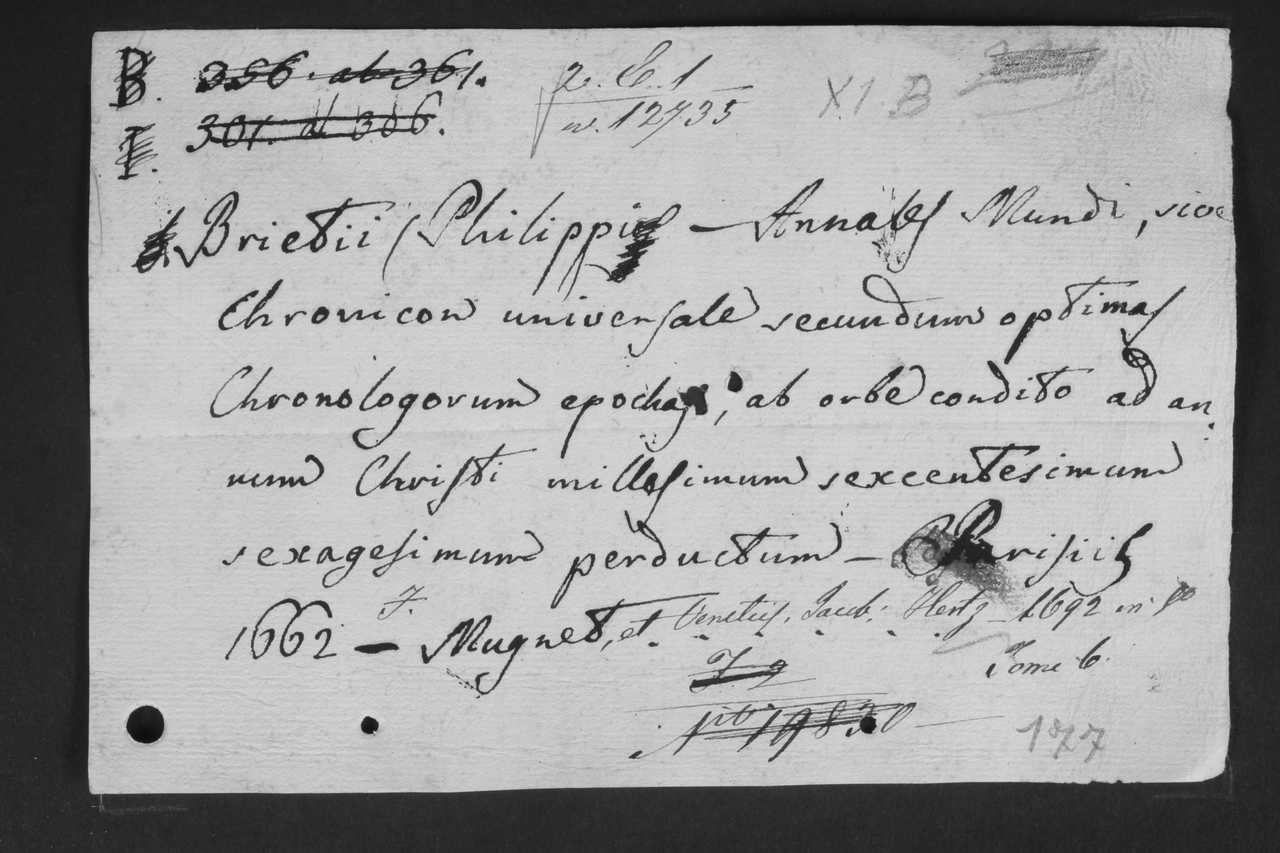 B. 356. ab 361. 2. C. 1
I. 301. al 306. n. 12735 X1. B
Brietii (Philippi — Annales Mundi, sive
Chronicon universale secundum optimas
Chronologorum epochas, ab orbe condito ad an,
num Christi millesimum sexcentesimum
sexagesimum perductum — Parisiis
1662 — Mugnet, et Venetiis, Jacob. Hertz 1692 in
Tome 6
19830
177